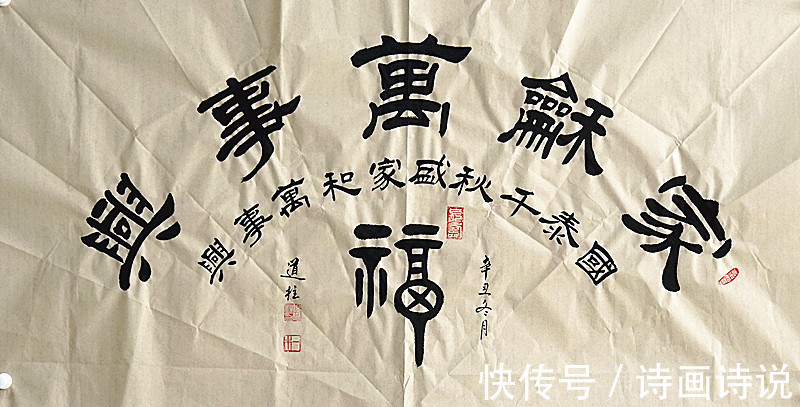 家龢萬事興
國泰千秋盛家和萬事興
福
辛丑冬月
道柱
快传号 / 诗画诗说